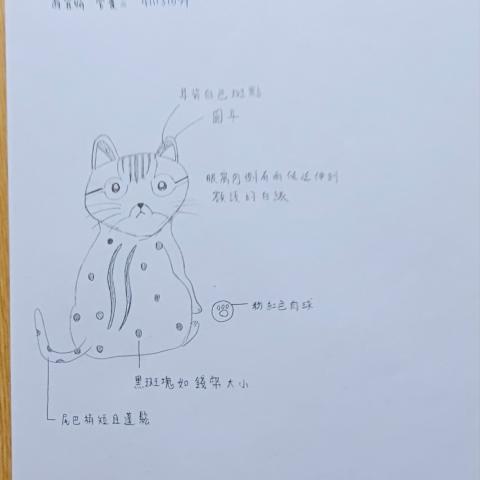 耳背白色斑點
圓耳
眼窩內側有兩條延伸到
額頭的白紋
粉紅色肉球
黑斑塊如錢幣大小
尾巴稍短且蓬鬆